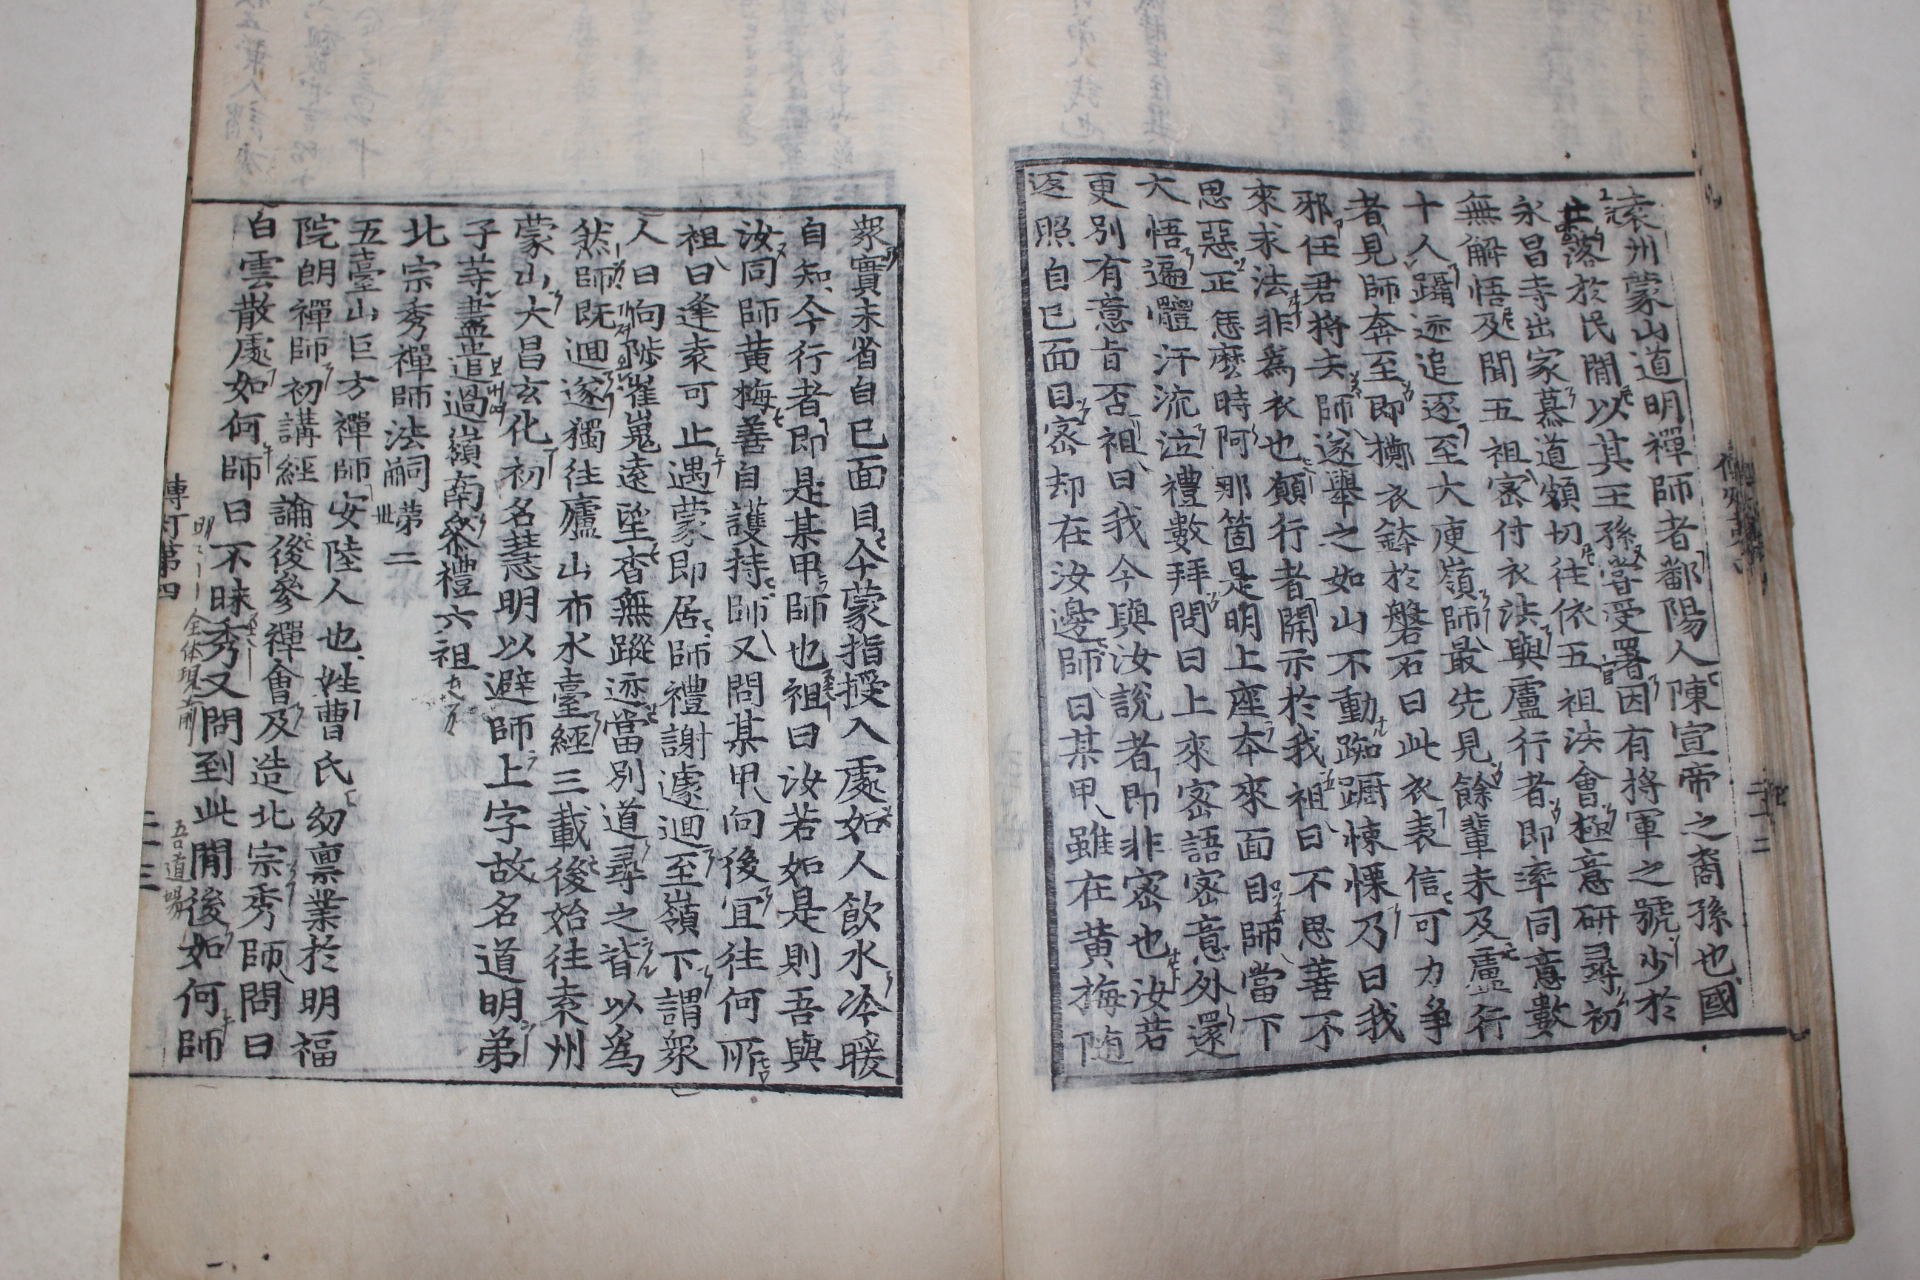 袁州蒙山道明禪師者鄱陽人陳宣帝之裔孫也國
亡落於民間以其王孫嘗受署因有將軍之號少於
永昌寺出家慕道頗切往依五祖法會極意研尋初
無解悟及聞五祖密付衣法與盧行者即率同意數
十人躡迹追逐至大庾嶺師最先見餘輩未及盧行
者見師奔至即擲衣鉢於磐石曰此衣表信可力爭
邪任君將去師遂舉之如山不動踟躕悚慄乃曰我
來求法非爲衣也願行者開示於我祖曰不思善不
思惡正恁麽時阿那箇是明上座本來面目師當下
大悟遍體汗流泣禮數拜問曰上來密語密意外還
更別有意旨否祖曰我今與汝說者即非密也汝若
返照自己面目密却在汝邊師曰某甲雖在黃梅隨
衆實未省自己面目今蒙指授入處如人飮水冷暖
自知今行者即是某甲師也祖曰汝若如是則吾與
汝同師黃梅善自護持師又問某甲向後宜往何所
祖曰逢袁可止遇蒙即居師禮謝遽迴至嶺下謂衆
人曰向陟崔嵬遠望杳無蹤迹當別道尋之皆以爲
然師既迴遂獨往廬山布水臺經三載後始往袁州
蒙山大昌玄化初名慧明以避師上字故名道明弟
子等盡遣過嶺南叅禮六祖
北宗秀禪師法嗣第二世
五臺山巨方禪師安陸人也姓曹氏幼稟業於明福
院朗禪師初講經論後參禪會及造北宗秀師問曰
白雲散處如何師曰不昧秀又問到此間後如何師
傳灯第四
二三
全体現前
吾道場